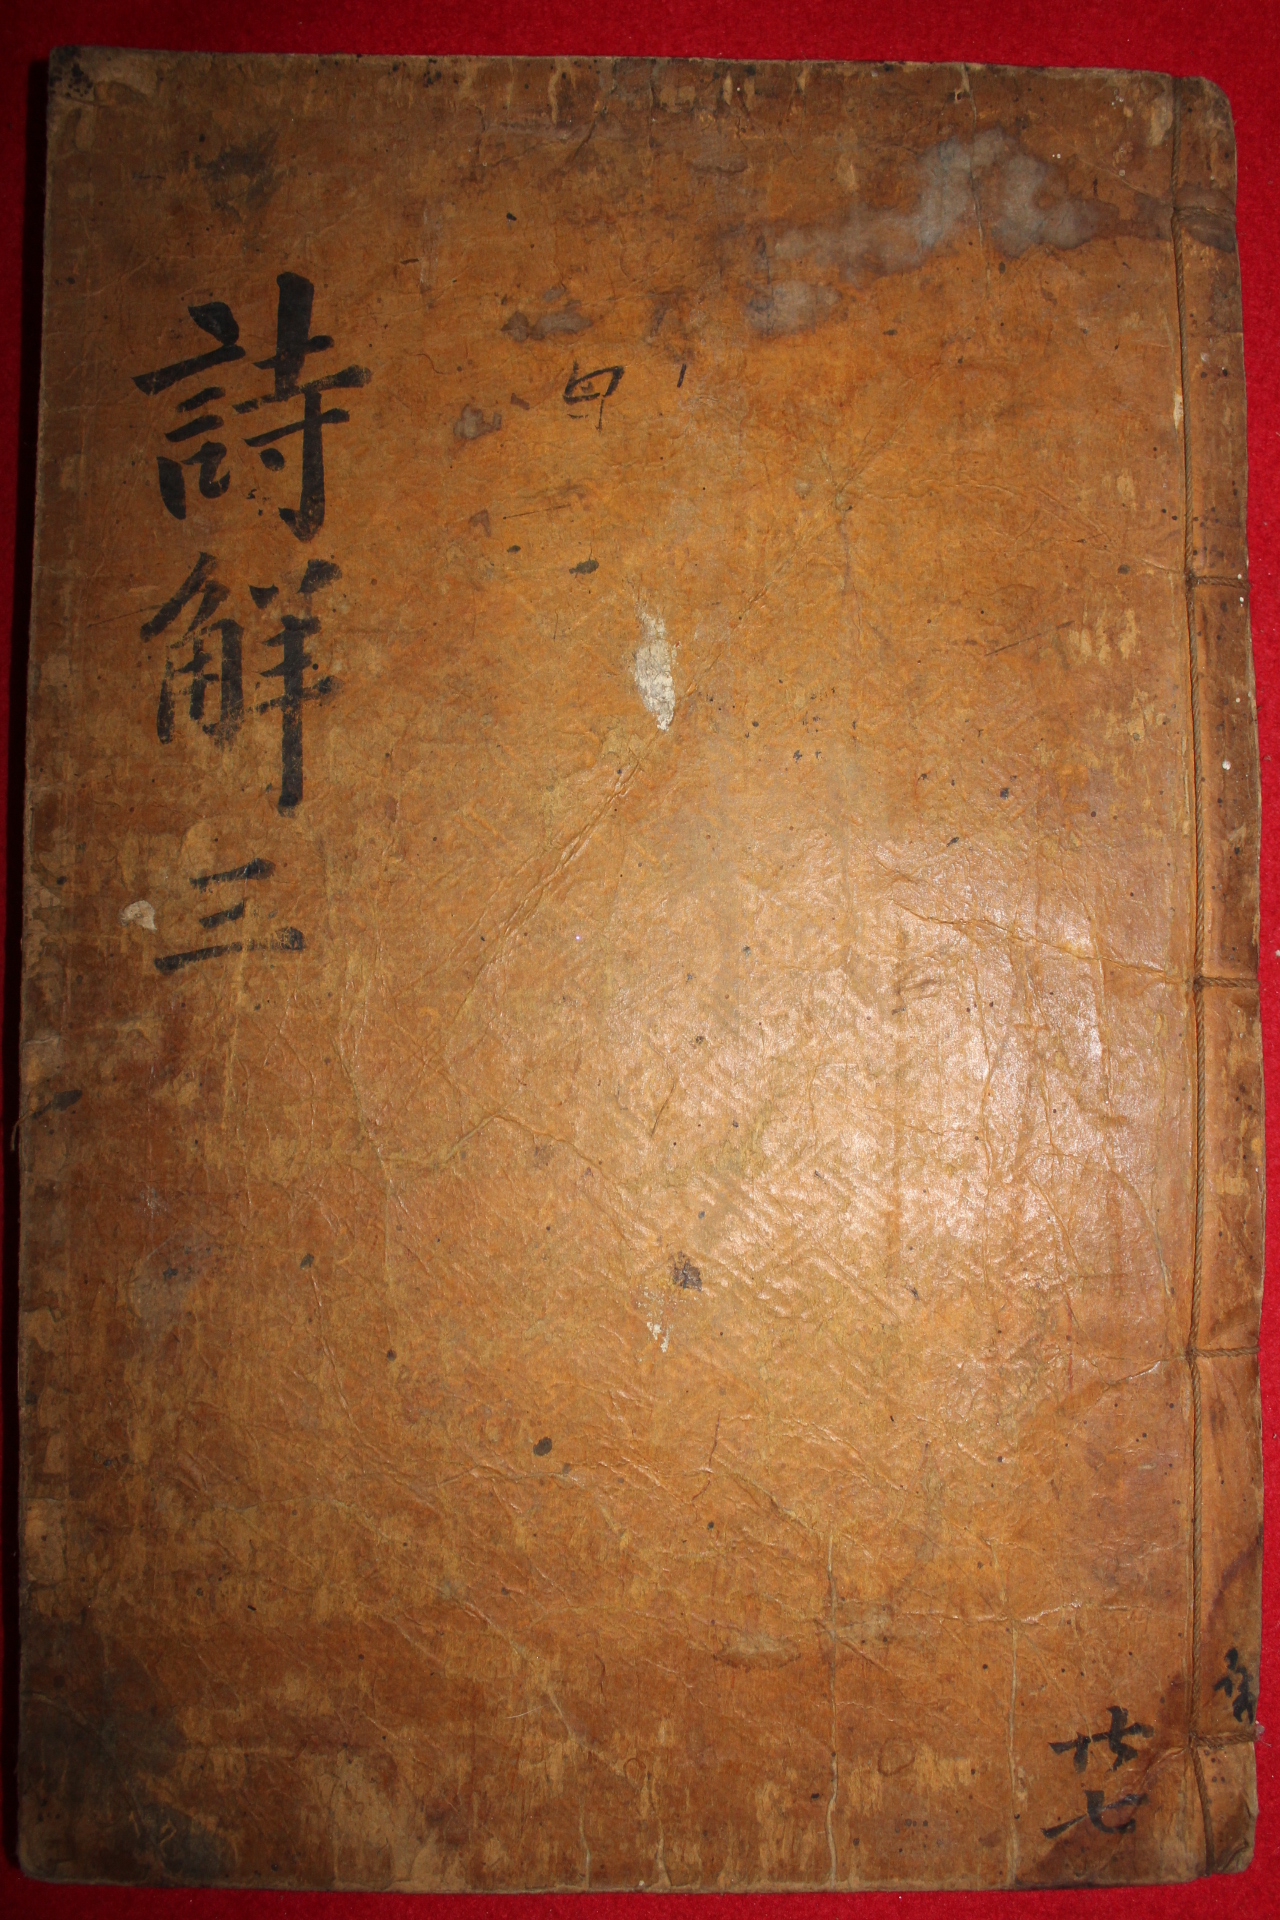 詩解三
廿七